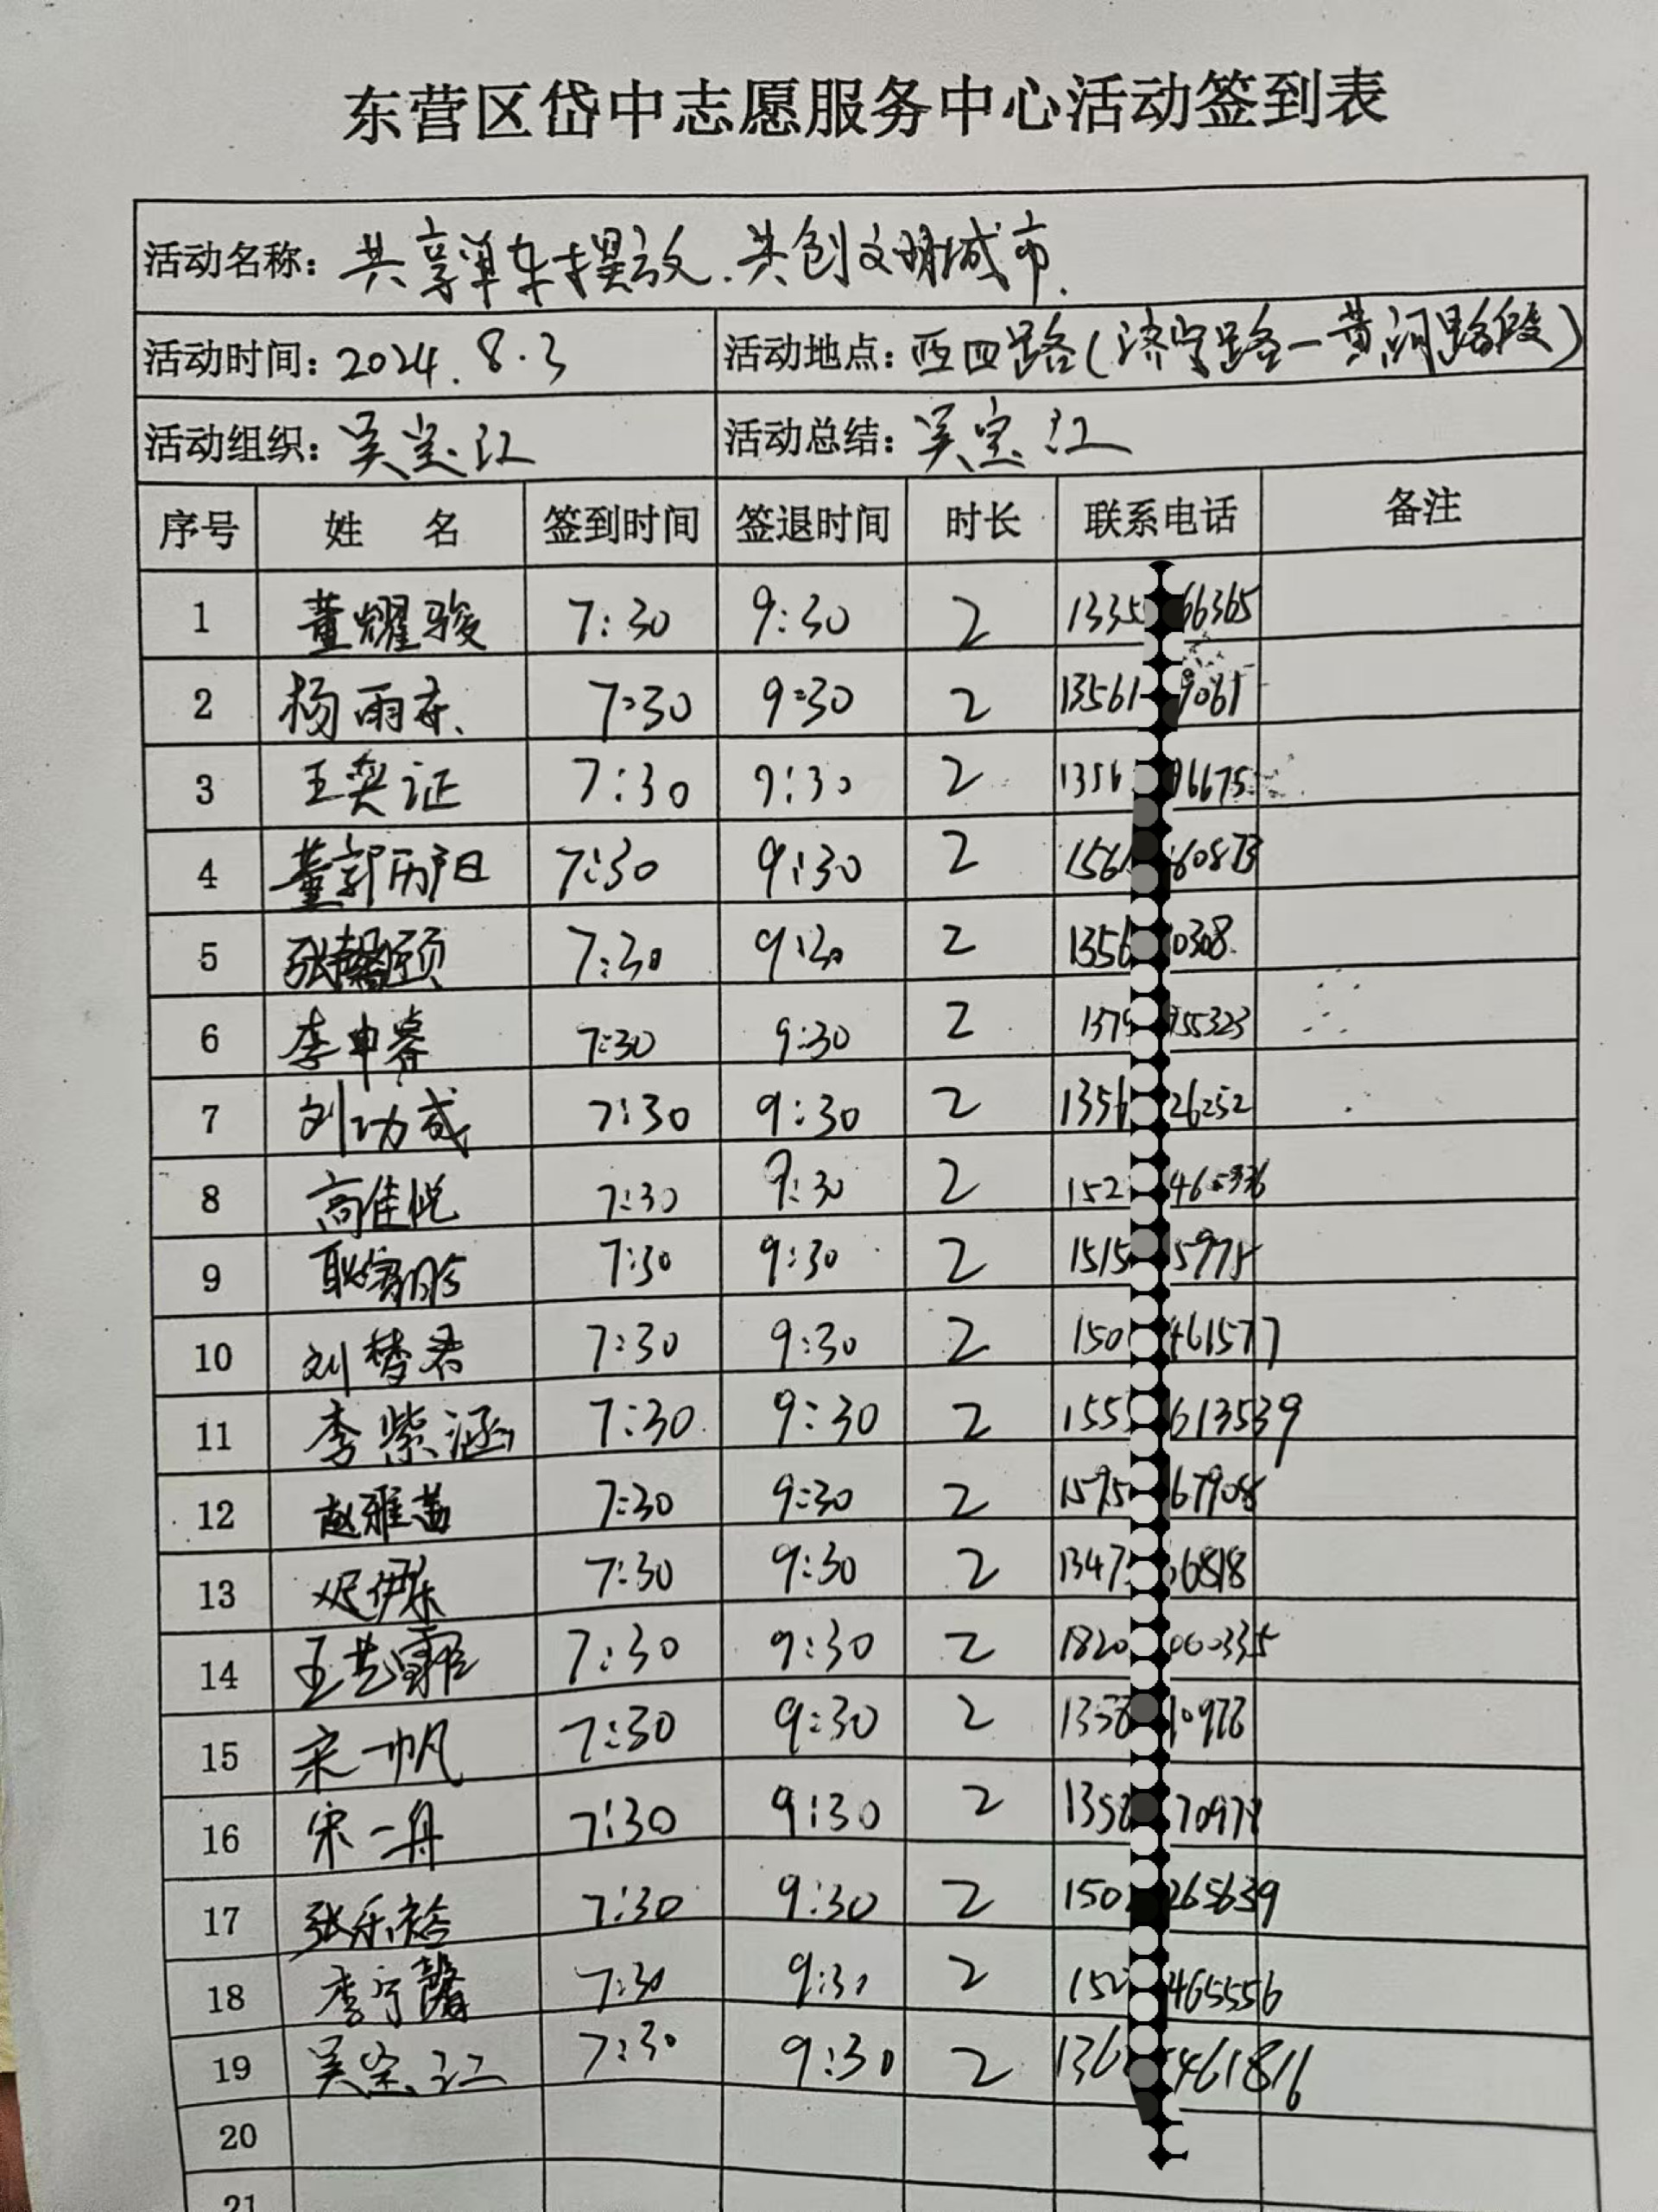 东营区岱中志愿服务中心活动签到表
活动名称：共享单车摆放.共创文明城市.
活动时间：2024.8.3 活动地点：西四路(济宁路—黄河路段)
活动组织：吴宝江 活动总结：吴宝江
序号 姓 名 签到时间 签退时间 时长 联系电话 备注
1 董耀骏 7:30 9:30 2 1335 66365
2 杨雨 7:30 9:30 2 13561 9061
3 王奕证 7:30 9:30 2 1356 96675
4 董郭历阳 7:30 9:30 2 156 60873
5 张 颐 7:30 9:30 2 1356 0308
6 李申睿 7:30 9:30 2 1379 55323
7 刘功成 7:30 9:30 2 1356 26252
8 高佳悦 7:30 9:30 2 152 465336
9 耿 7:30 9:30 2 1515 5978
10 刘梦君 7:30 9:30 2 150 461577
11 李紫涵 7:30 9:30 2 155 613539
12 赵雅茜 7:30 9:30 2 1595 67908
13 迟伊乐 7:30 9:30 2 1347 6818
14 王艺霏 7:30 9:30 2 1820 00335
15 宋一帆 7:30 9:30 2 1358 0978
16 宋一舟 7:30 9:30 2 1358 70978
17 张乐裕 7:30 9:30 2 150 265639
18 李宁馨 7:30 9:30 2 152 465556
19 吴宝江 7:30 9:30 2 136 461816
20
21